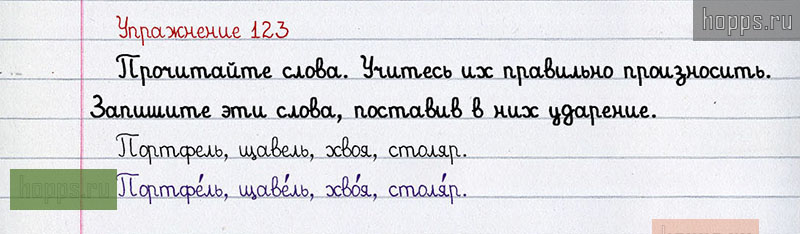 hopps.ru
Упражнение 123
Прочитайте слова. Учитесь их правильно произносить.
Запишите эти слова, поставив в них ударение.
Портфель, щавель, хвоя, столяр.
hopps.ru
Портфе́ль, щаве́ль, хво́я, столя́р.
hopps.ru